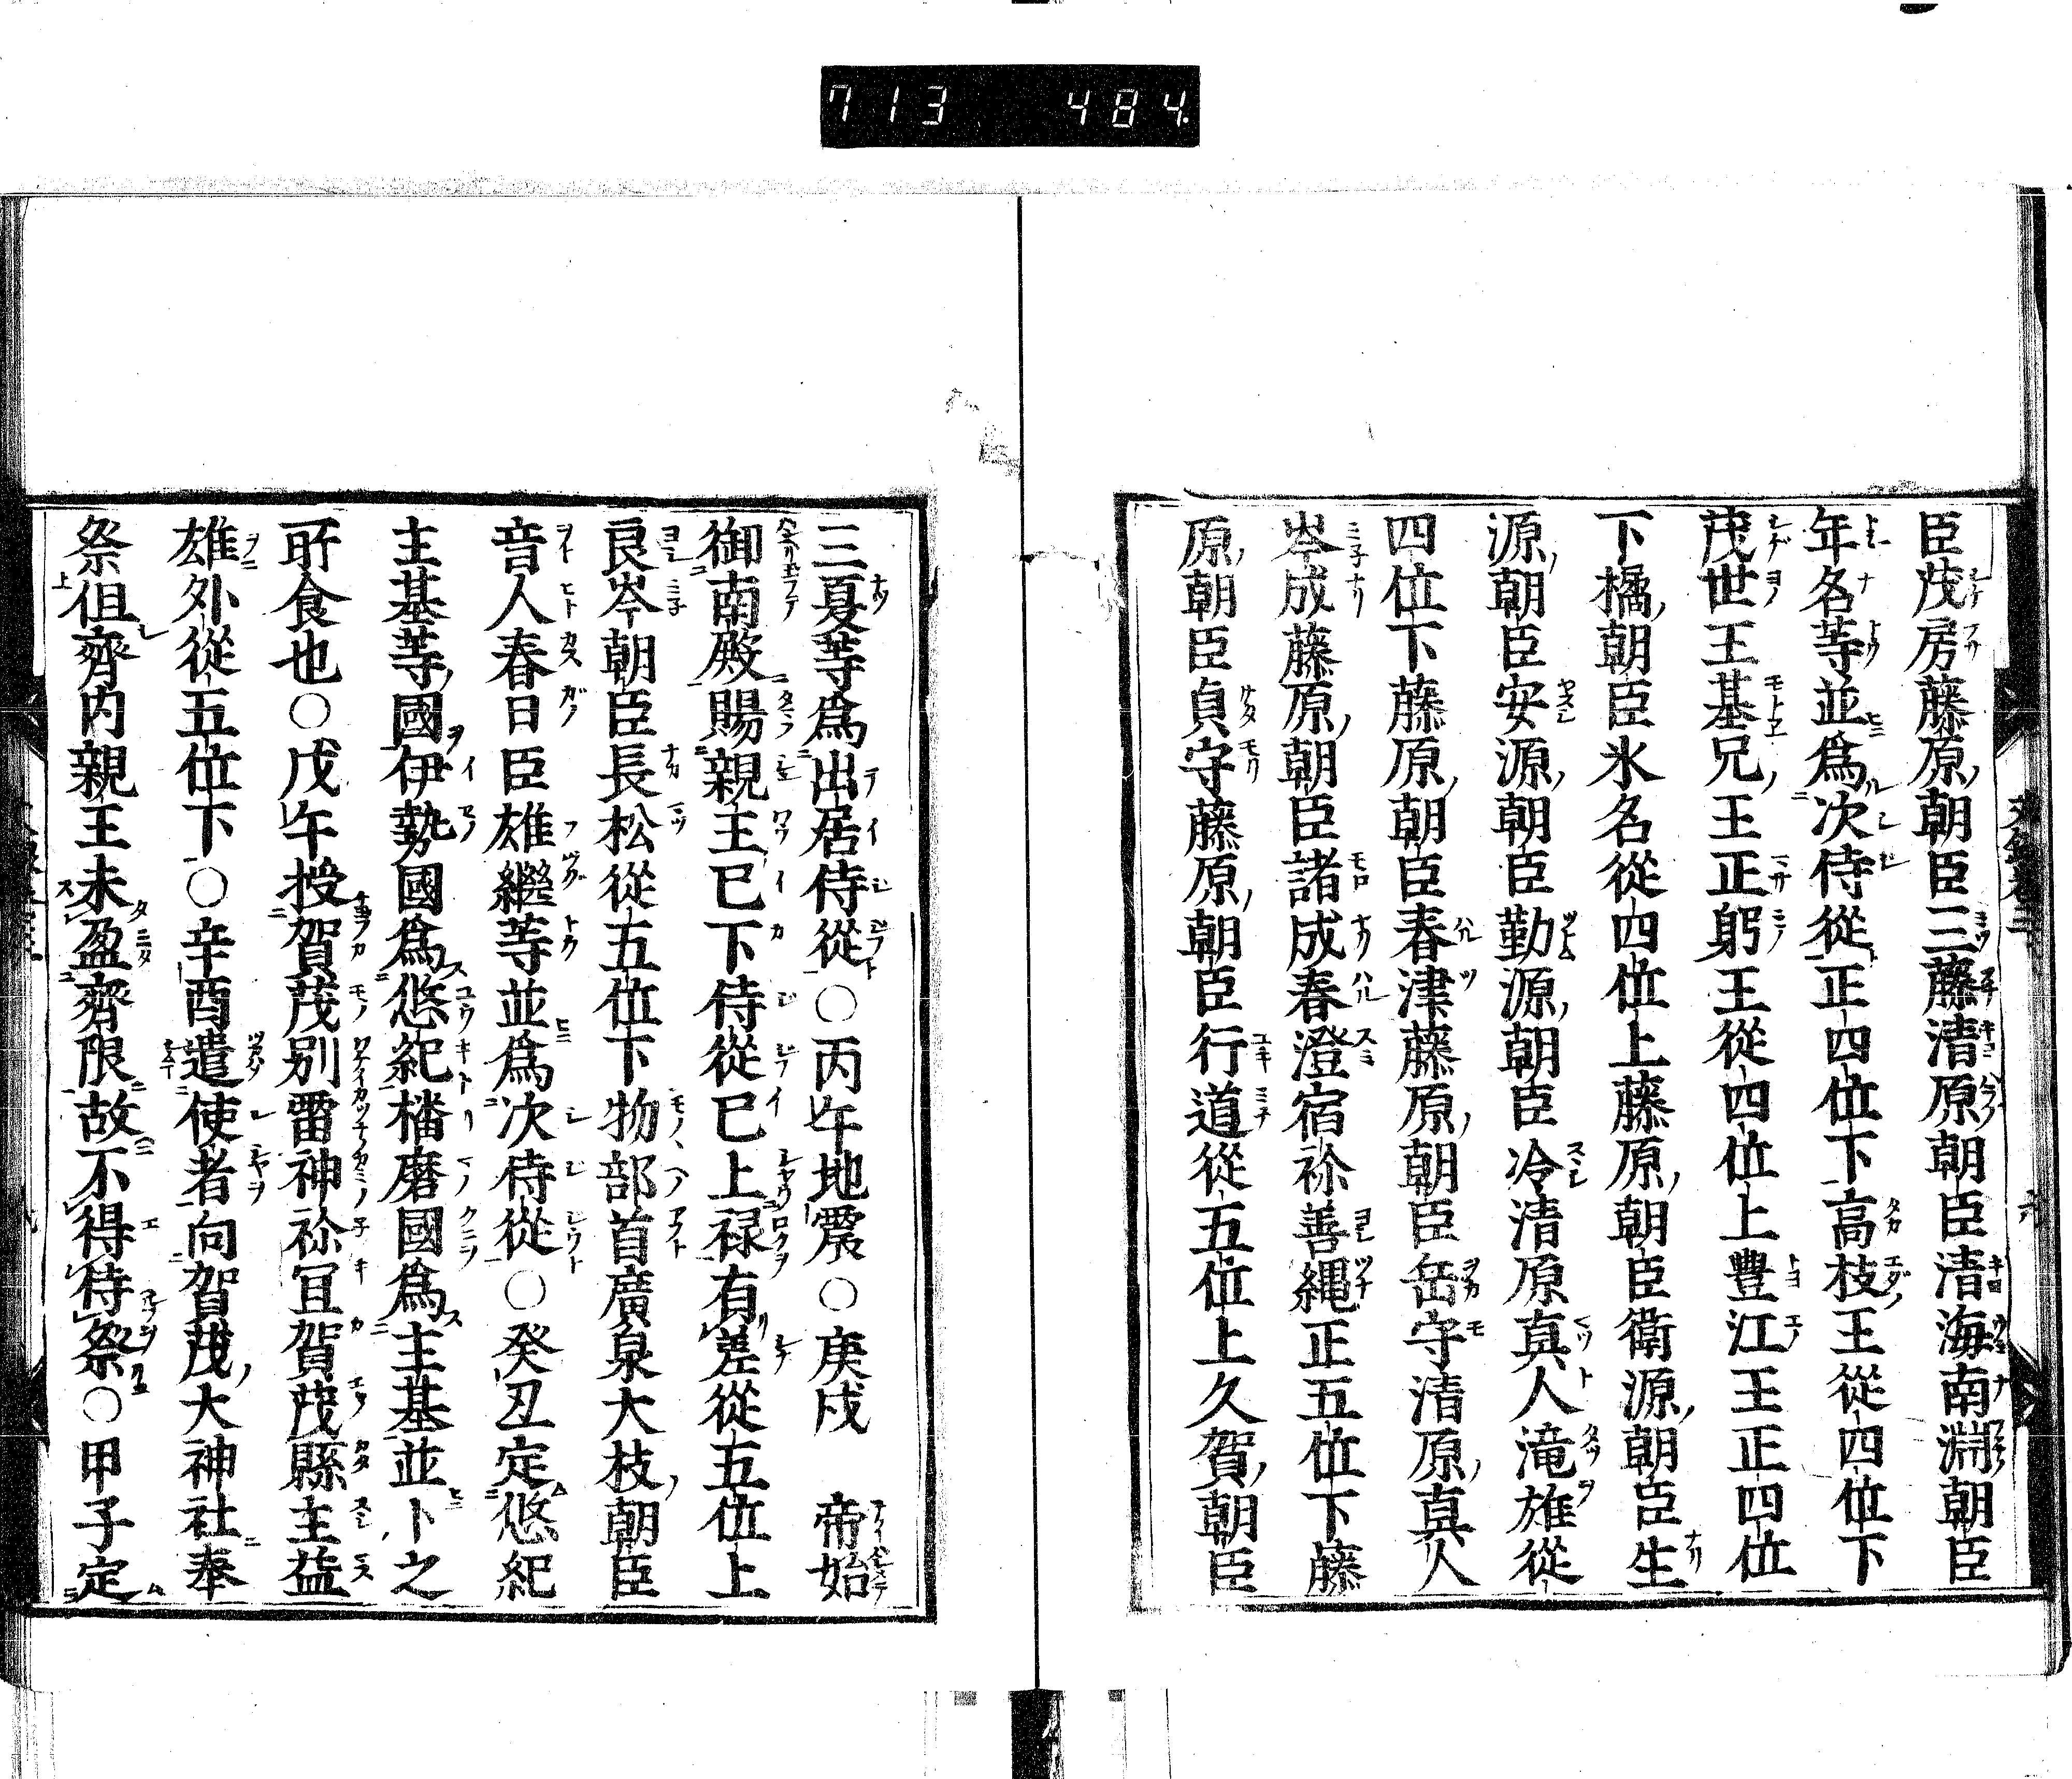 713 484
臣茂房藤原朝臣三藤清原朝臣清海南淵朝臣
年名等並爲次侍從正四位下高枝王從四位下
茂世王基兄王正躬王從四位上豊江王正四位
下橘朝臣氷名從四位上藤原朝臣衛源朝臣生
源朝臣安源朝臣勤源朝臣冷清原真人滝雄從
四位下藤原朝臣春津藤原朝臣岳守清原真人
岑成藤原朝臣諸成春澄宿祢善縄正五位下藤
原朝臣貞守藤原朝臣行道從五位上久賀朝臣
三夏等爲出居侍從○丙午地震○庚戌 帝始
御南殿賜親王已下侍從已上禄有差從五位上
良岑朝臣長松從五位下物部首廣泉大枝朝臣
音人春日臣雄繼等並爲次侍從○癸丑定悠紀
主基等國伊勢國爲悠紀播磨國爲主基並卜之
所食也○戊午授賀茂別雷神祢宜賀茂縣主益
雄外從五位下○辛酉遣使者向賀茂大神社奉
祭但齊内親王未盈齊限故不得侍祭○甲子定